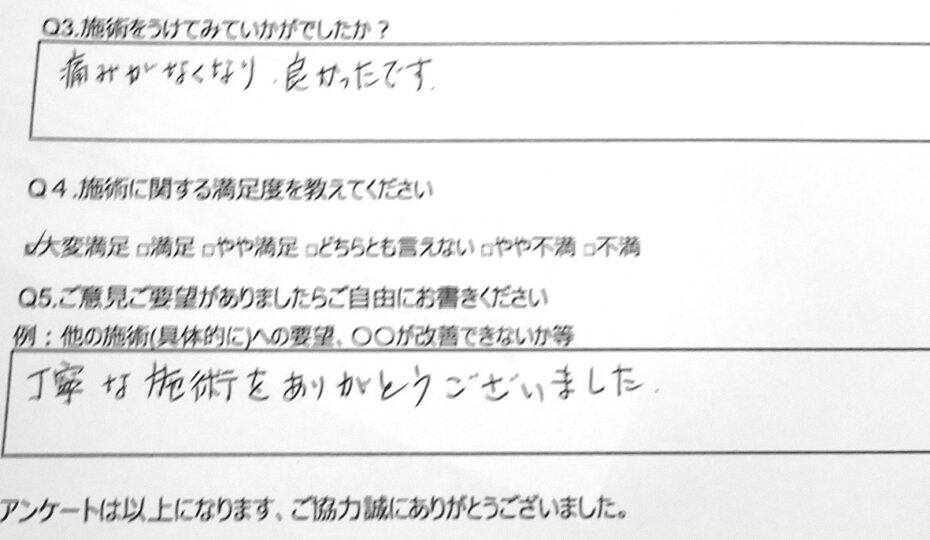 Q3.施術をうけてみていかがでしたか？
痛みがなくなり、良かったです.
Q４.施術に関する満足度を教えてください
☑大変満足 □満足 □やや満足 □どちらとも言えない □やや不満 □不満
Q5.ご意見ご要望がありましたらご自由にお書きください
例：他の施術(具体的に)への要望、〇〇が改善できないか等
丁寧な施術をありがとうございました.
アンケートは以上になります、ご協力誠にありがとうございました。